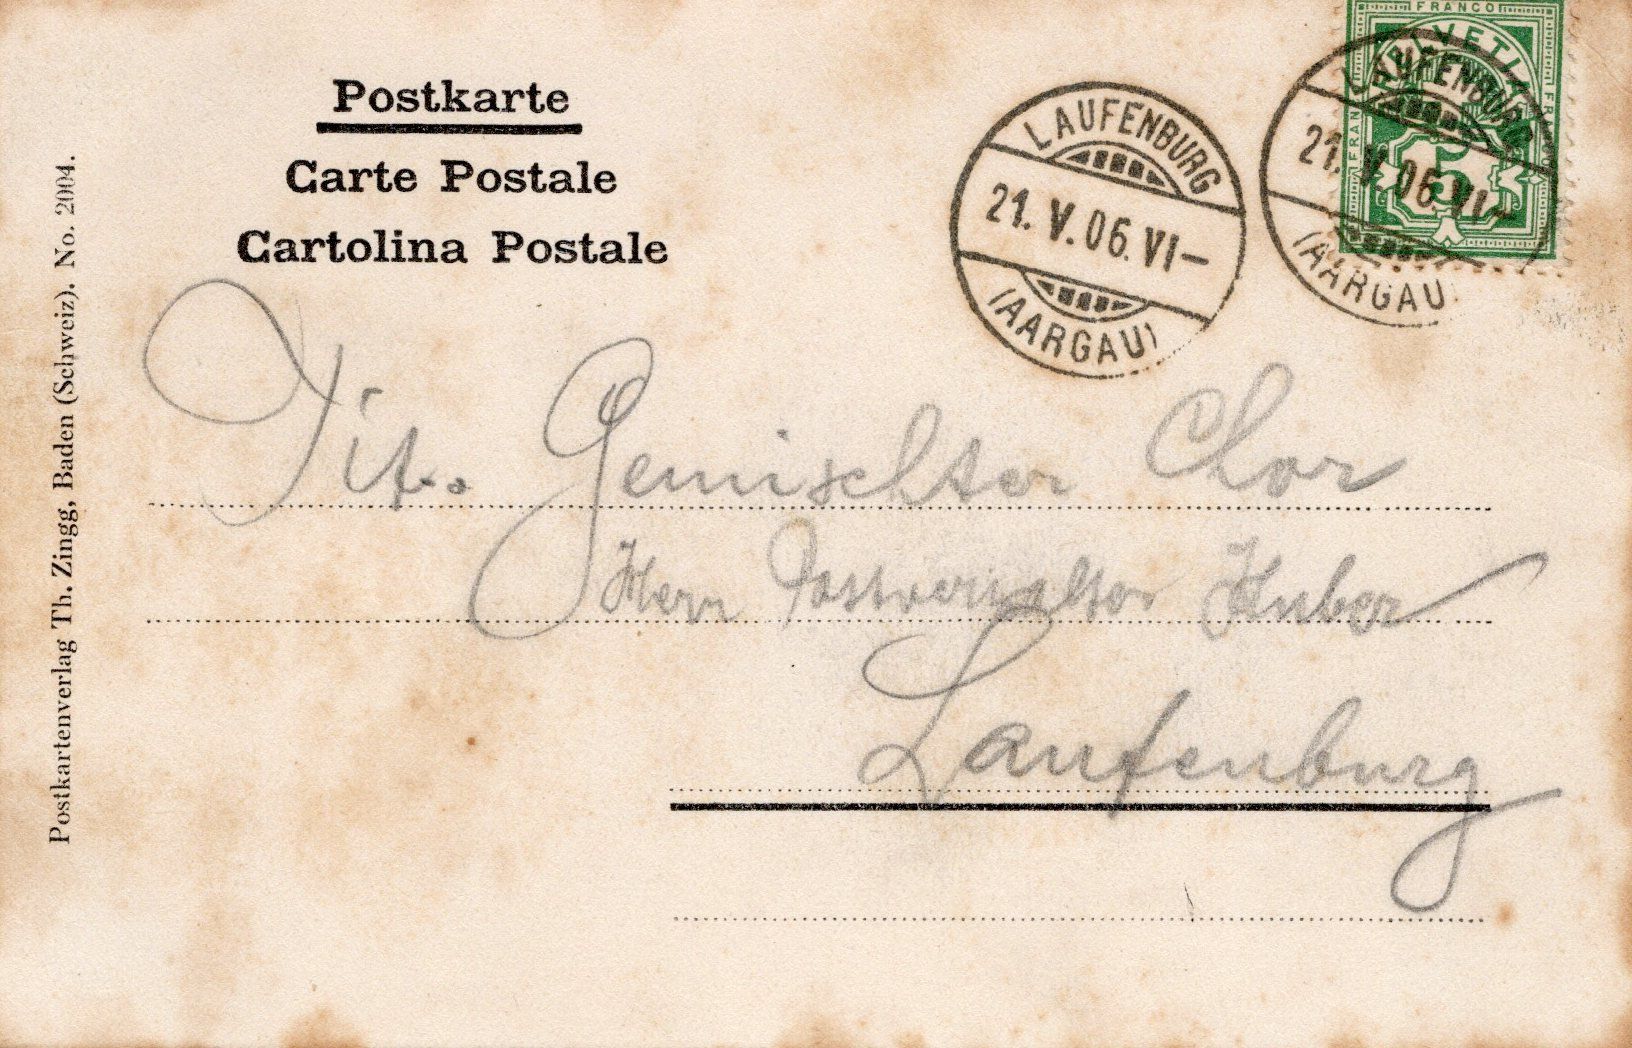 Postkarte
Carte Postale
Cartolina Postale
LAUFENBURG
21. V. 06. VI–
(AARGAU)
FRANCO
HELVETIA
FRANCO
FRANCO
5
LAUFENBURG
21. V. 06. VI–
(AARGAU)
Tit. Gemischter Chor
Herr Postverwalter Huber
Laufenburg
Postkartenverlag Th. Zingg, Baden (Schweiz). No. 2004.